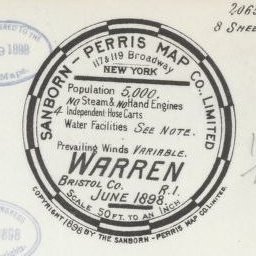 2063
8 SHEE
SANBORN - PERRIS MAP CO. LIMITED
117 & 119 Broadway
NEW YORK
Population 5,000.
No Steam & No Hand Engines
4 Independent Hose Carts
Water Facilities SEE NOTE.
Prevailing Winds VARIABLE.
WARREN
BRISTOL CO. R.I.
JUNE 1898.
SCALE 50 FT. TO AN INCH
COPYRIGHT 1898 BY THE SANBORN - PERRIS MAP CO. LIMITED.
9 1898
Maps.
1898